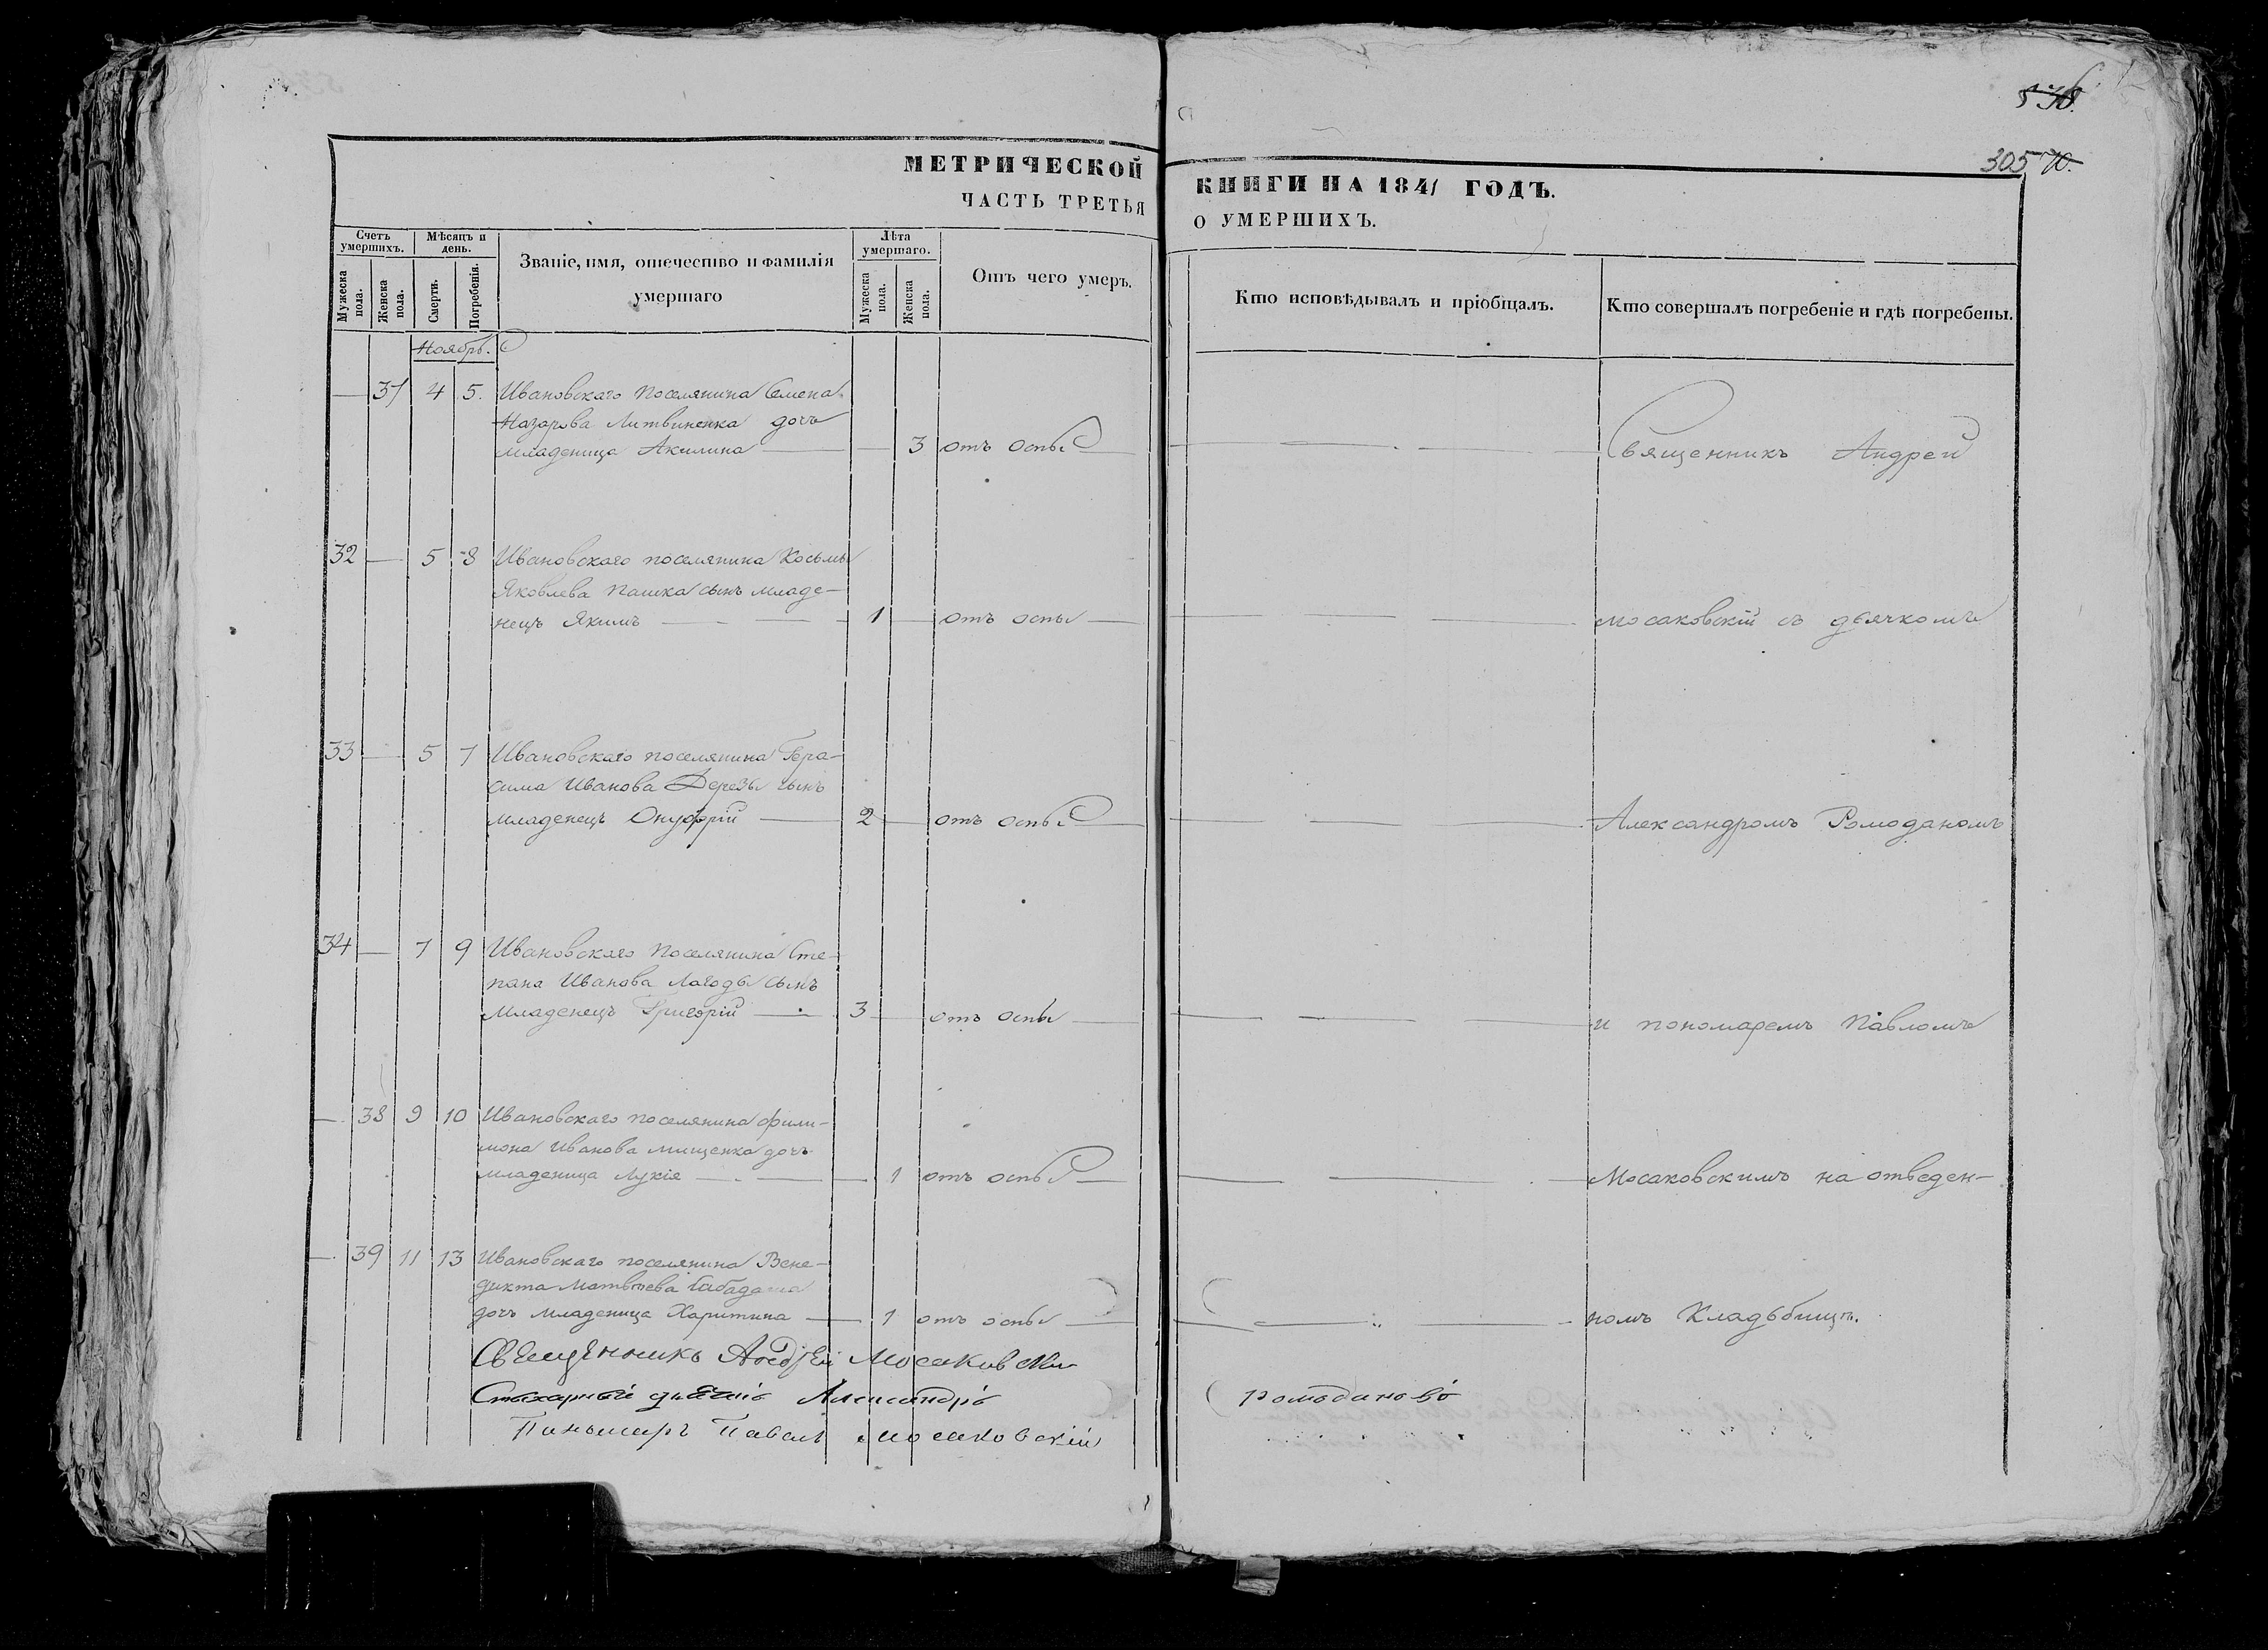 538.
305 70.
МЕТРИЧЕСКОЙ
ЧАСТЬ ТРЕТЬЯ
КНИГИ НА 1841 ГОДЪ.
О УМЕРШИХЪ.
Счетъ умершихъ.
Мужеска пола.
Женска пола.
Мѣсяцъ и день.
Смерти.
Погребенія.
Званіе, имя, отечество и фамилія
умершаго
Лѣта умершаго.
Мужеска пола.
Женска пола.
Отъ чего умеръ.
Кто исповѣдывалъ и пріобщалъ.
Кто совершалъ погребеніе и гдѣ погребены.
Ноябрь.
37 4 5. Ивановскаго поселянина Семена
Назарова Литвиненка дочь
младеница Акилина — 3 отъ оспы — Священникъ Андрей
32 — 5 8 Ивановскаго поселянина Косьмы
Яковлева Пашка сынъ младе-
нецъ Якимъ — 1 — отъ оспы — Мосаковскій съ дьячкомъ
33 — 5 7 Ивановскаго поселянина Гера-
сима Иванова Дерезы сынъ
младенецъ Онуфрій — 2 — отъ оспы — Александромъ Ромоданомъ
34 — 7 9 Ивановскаго поселянина Сте-
пана Иванова Лагоды сынъ
младенецъ Григорій — 3 — отъ оспы — и пономаремъ Павломъ
— 38 9 10 Ивановскаго поселянина Фили-
мона Иванова Мищенка дочь
младеница Лукія — 1 отъ оспы — Мосаковскимъ на отведен-
— 39 11 13 Ивановскаго поселянина Вене-
дикта Матвѣева
дочь младеница Харитина — 1 отъ оспы — номъ Кладьбищѣ.
Священникъ Андрей Мосаковскій
Стихарный дьячокъ Александръ Ромодановъ
Пономарь Павелъ Мосаковскій